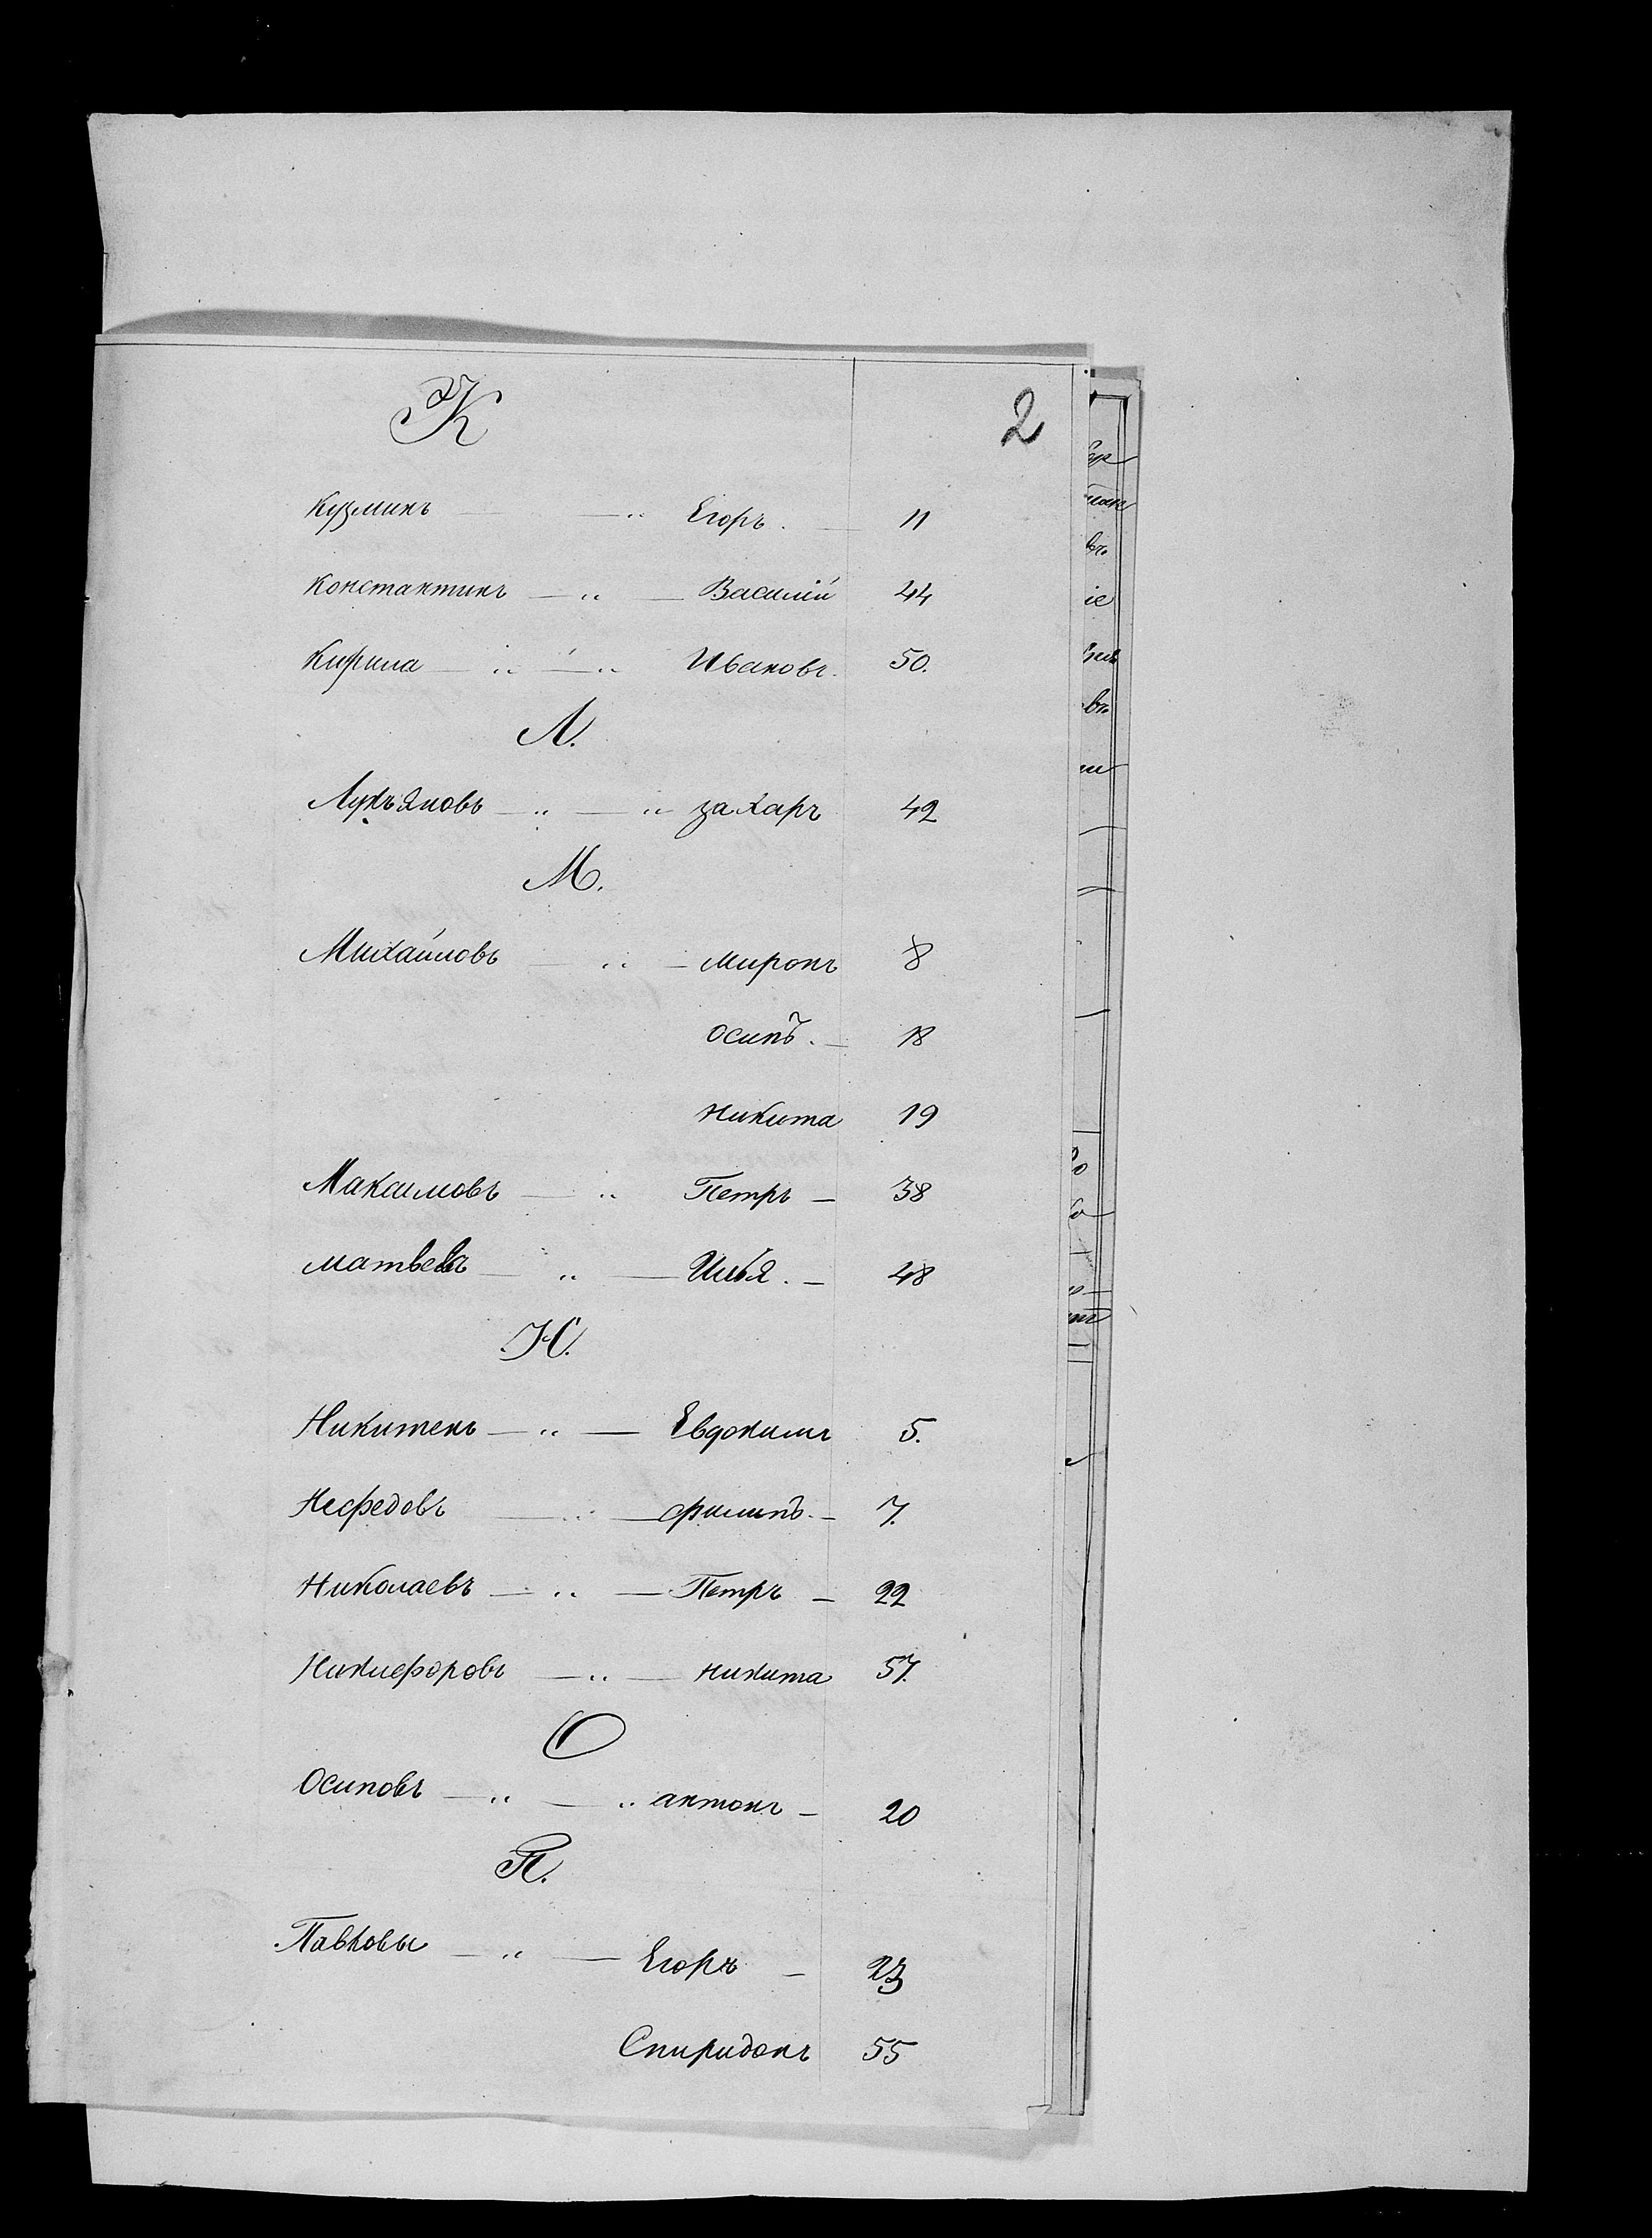 К
2
Кузминъ — „ Егоръ. — 11
Константинъ — „ — Василiй 44
Кирила — „ — „ Ивановъ. 50.
Л.
Лукъяновъ — „ — „ захаръ 42
М.
Михайловъ — „ — миронъ 8
осипъ. — 18
никита 19
Максимовъ — „ Петръ — 38
матвевъ — „ — Илья. — 48
Н.
Никитенъ — „ — Евдокимъ 5.
Нефедовъ — „ — филипъ. — 7.
Николаевъ — „ — Петръ — 22
Никифоровъ — „ — никита 57.
О
Осиповъ — „ — „ антонъ — 20
П.
Павковы — „ — Егоръ — 23
Спиридонъ 55